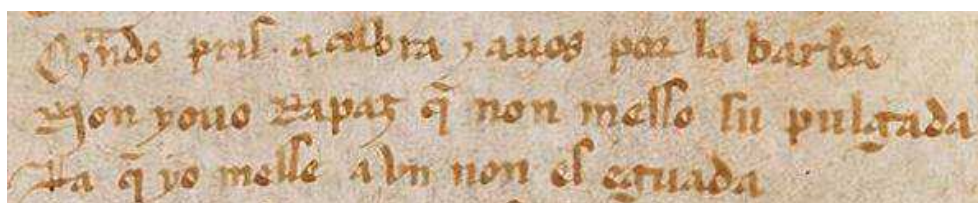 Qndo pris a cabra y auos por la barba
Non youo Rapaz q̃ non messo su pulgada
La q̃ yo messe a vn non es eguada